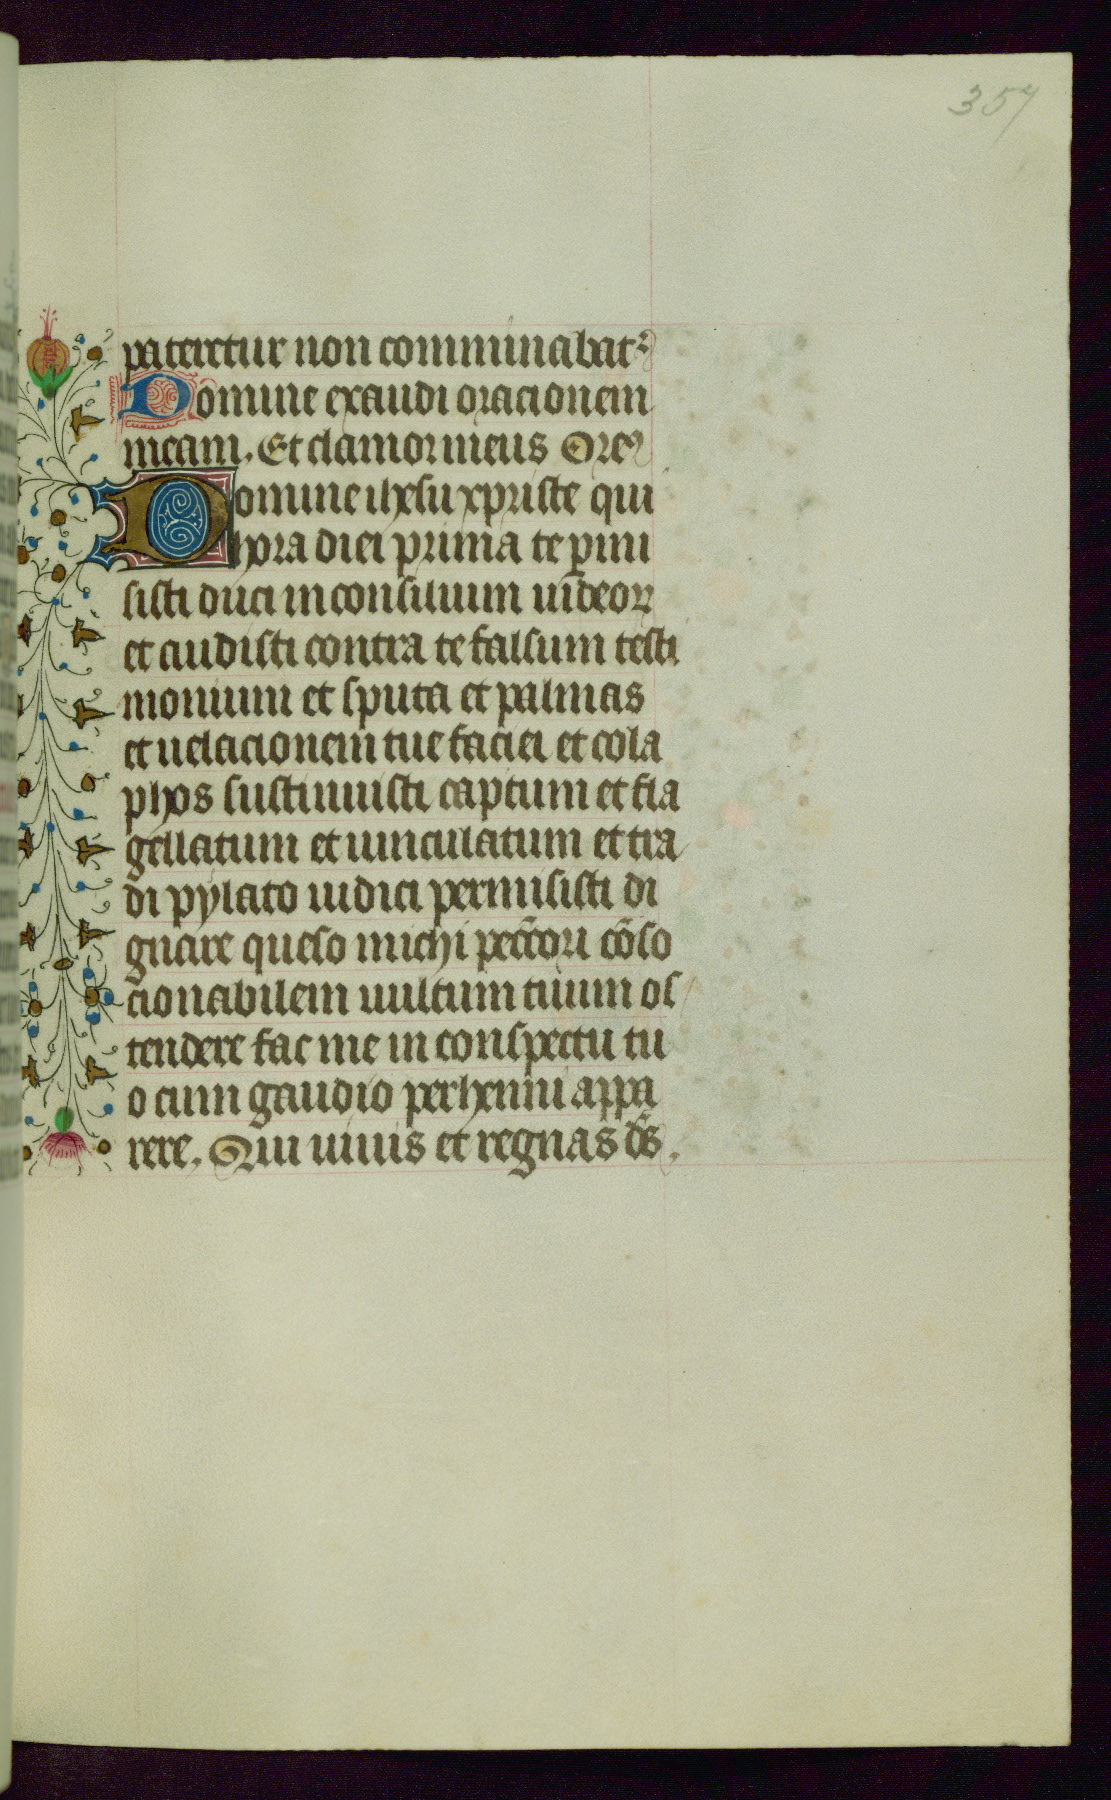 357
pateretur non comminabatr
Domine exaudi oracionem
meam. Et clamor meus Orem9
Domine ihesu xpriste qui
hora diei prima te p̱mi
sisti duci in consilium uīdeoꝝ
et audisti contra te falsum testi
monium et sputa et palmas
et uelacionem tue faciei et cola
phos sustinuisti captum et fla
gellatum et uinculatum et tra
di pylato iudici permisisti di
gnare queso michi pect̄ori cōso
cionabilem uultum tuum os
tendere fac me in conspectu tu
o cum gaudio perhenni appa
rere. Qui uiuis et regnas ds̄.